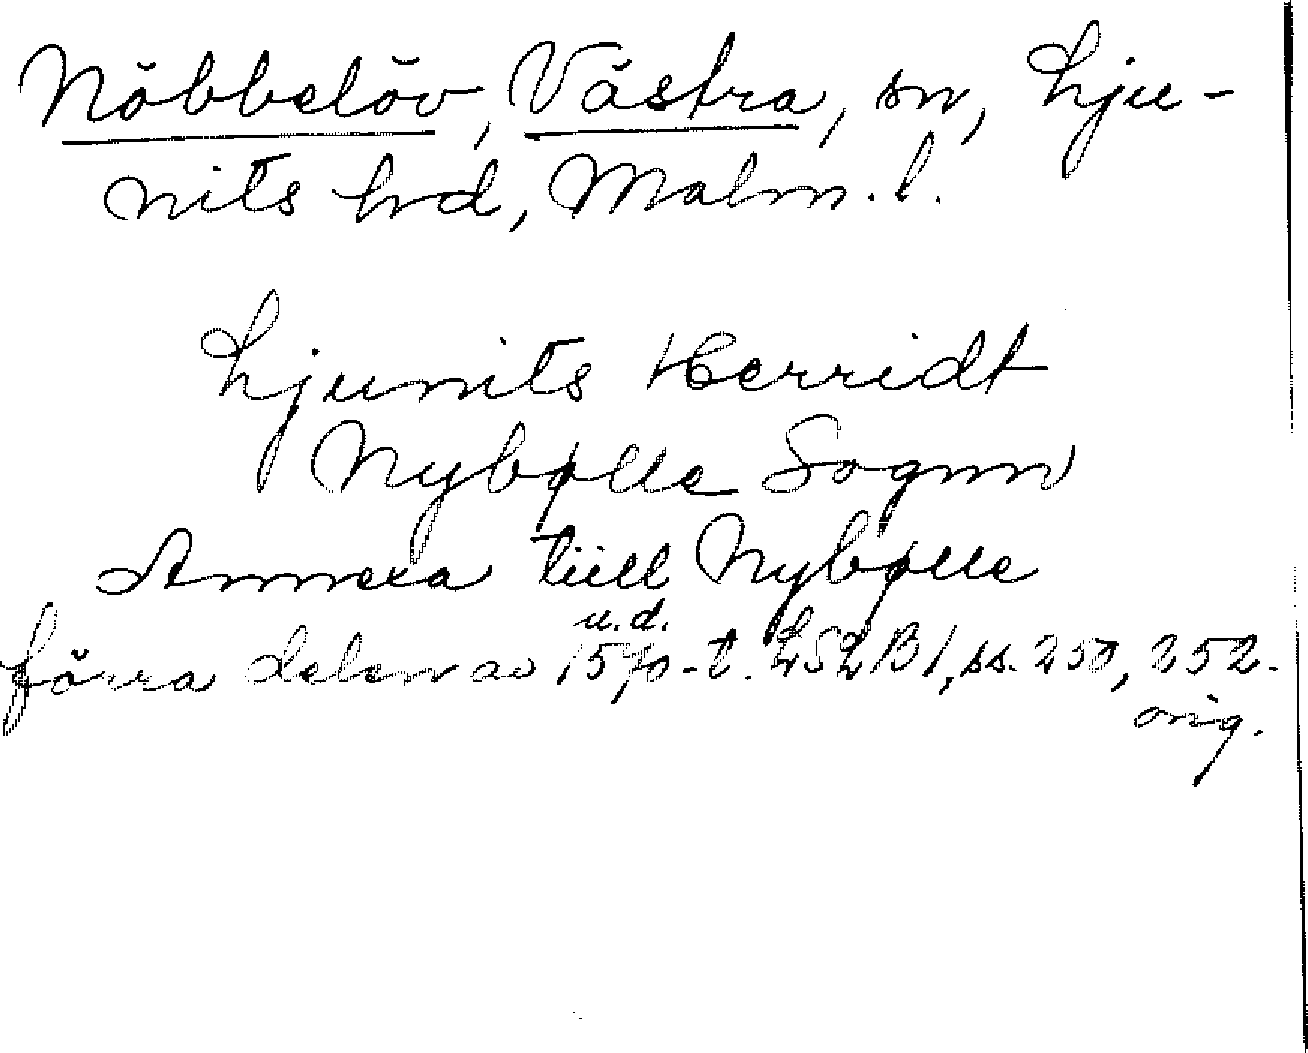 Nöbbelöv, Västra, sn, Lju-
nits hd, Malm. l.
Ljunits Herridt
Nybølle Sognn
Annexa tiill Nybølle
u.d.
förra delen av 1570-t. LSLB1, ss. 250, 252.
orig.